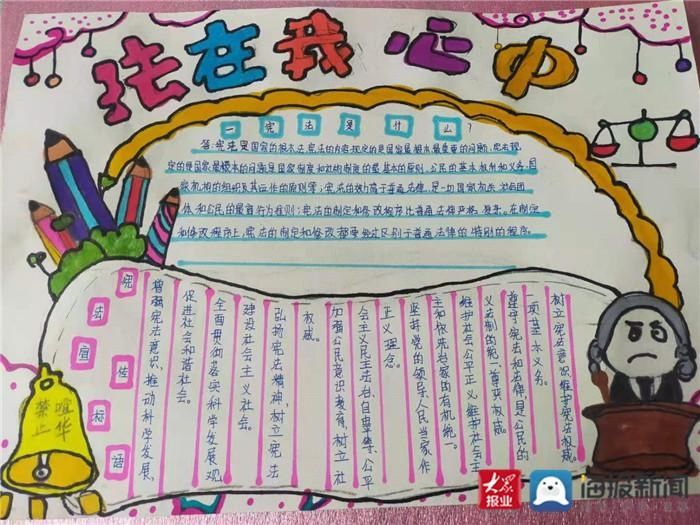 法在我心中
一宪法是什么?
答:宪法是国家的根本法,宪法的内容规定的是国家最根本最重要的问题,宪法规
定的是国家最根本的问题是国家制度和社会制度的最基本的原则,公民的基本权利和义务,国
家机构的组织及其运作的原则等;宪法的效力高于普通法律,是一切国家机关、社会团
体和公民的最高行为准则;宪法的制定和修改程序比普通法律严格、复杂。在制定
和修改程序上,宪法的制定和修改都要经过区别于普通法律的特别的程序。
宪法宣传标语
树立宪法意识维护宪法权威
遵守宪法和法律,是公民的
一项基本义务。
维护社会公平正义维护社会主
义法制的统一、尊严、权威。
坚持党的领导、人民当家作
主和依法治国的有机统一。
加强公民意识教育,树立社
会主义民主法治、自由平等、公平
正义理念。
弘扬宪法精神,树立宪法
权威。
建设社会主义社会。
全面贯彻落实科学发展观
促进社会和谐社会。
增强宪法意识,推动科学发展,
禁止喧华
大众报业
海报新闻